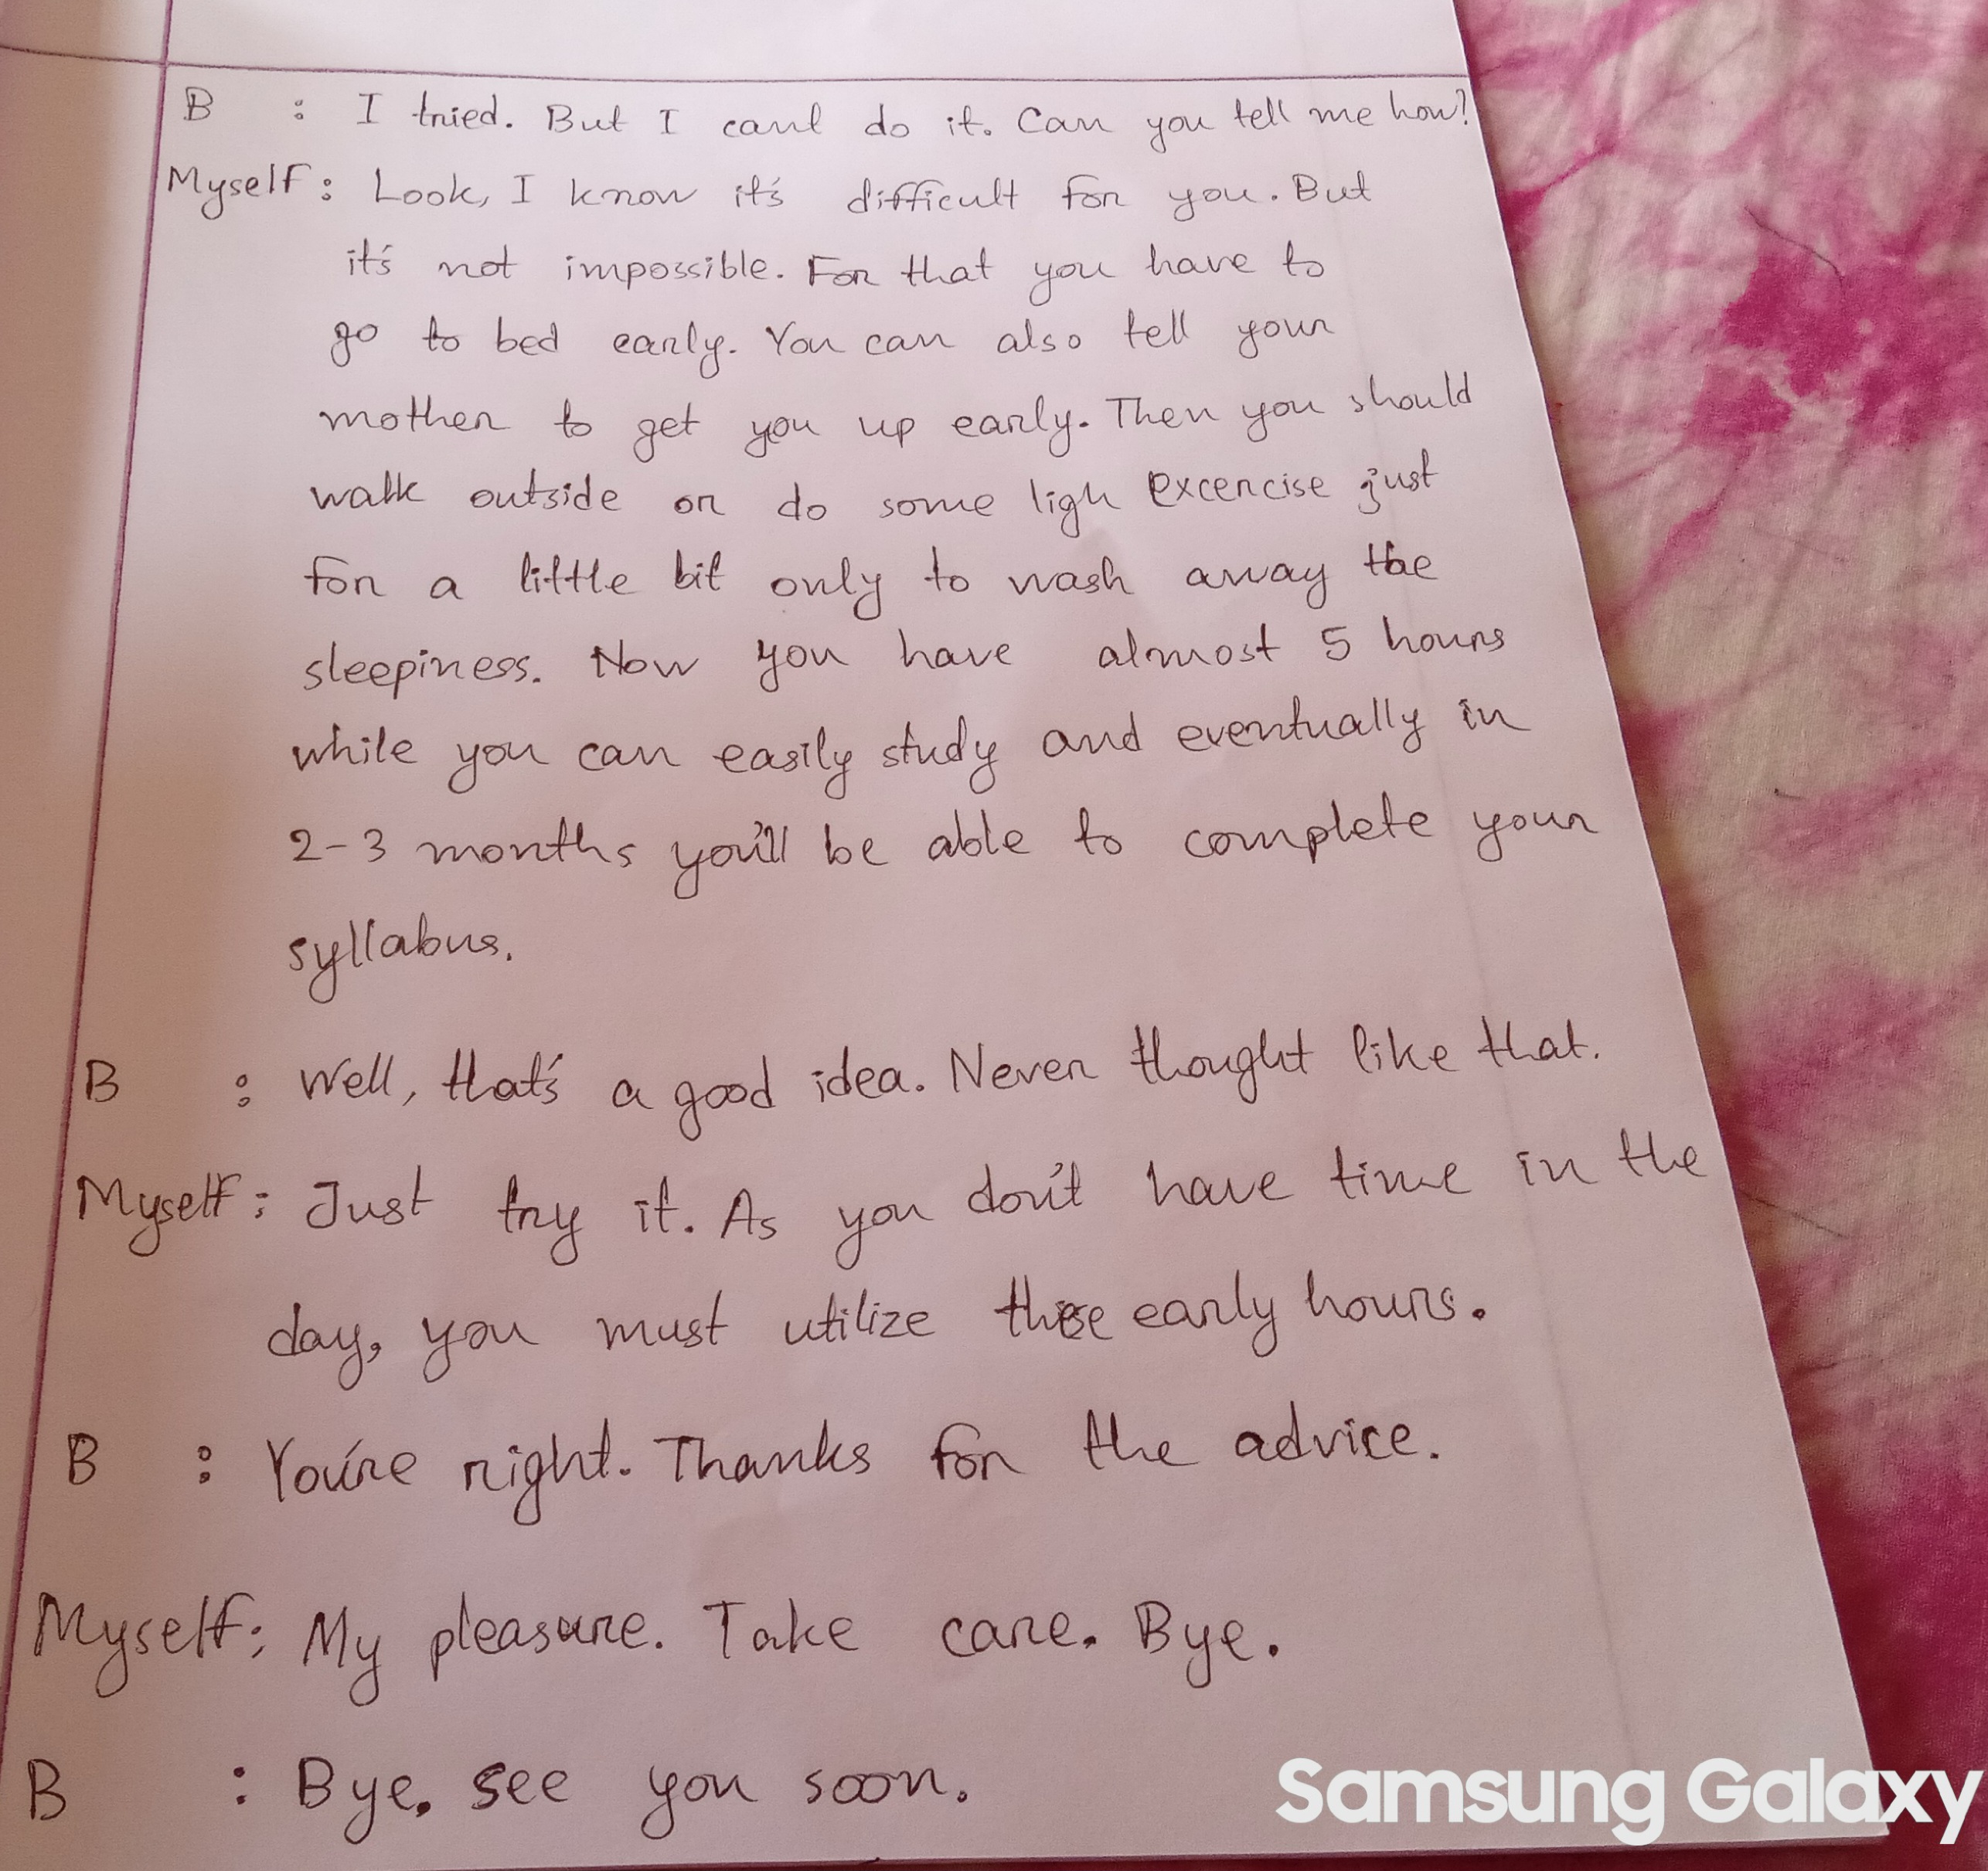 B : I tried. But I can't do it. Can you tell me how?
Myself : Look, I know it's difficult for you. But
it's not impossible. For that you have to
go to bed early. You can also tell your
mother to get you up early. Then you should
walk outside or do some ligh excercise just
for a little bit only to wash away the
sleepiness. Now you have almost 5 hours
while you can easily study and eventually in
2-3 months you'll be able to complete your
syllabus.
B : Well, that's a good idea. Never thought like that.
Myself : Just try it. As you don't have time in the
day, you must utilize these early hours.
B : You're right. Thanks for the advice.
Myself : My pleasure. Take care. Bye.
B : Bye. See you soon.
Samsung Galaxy